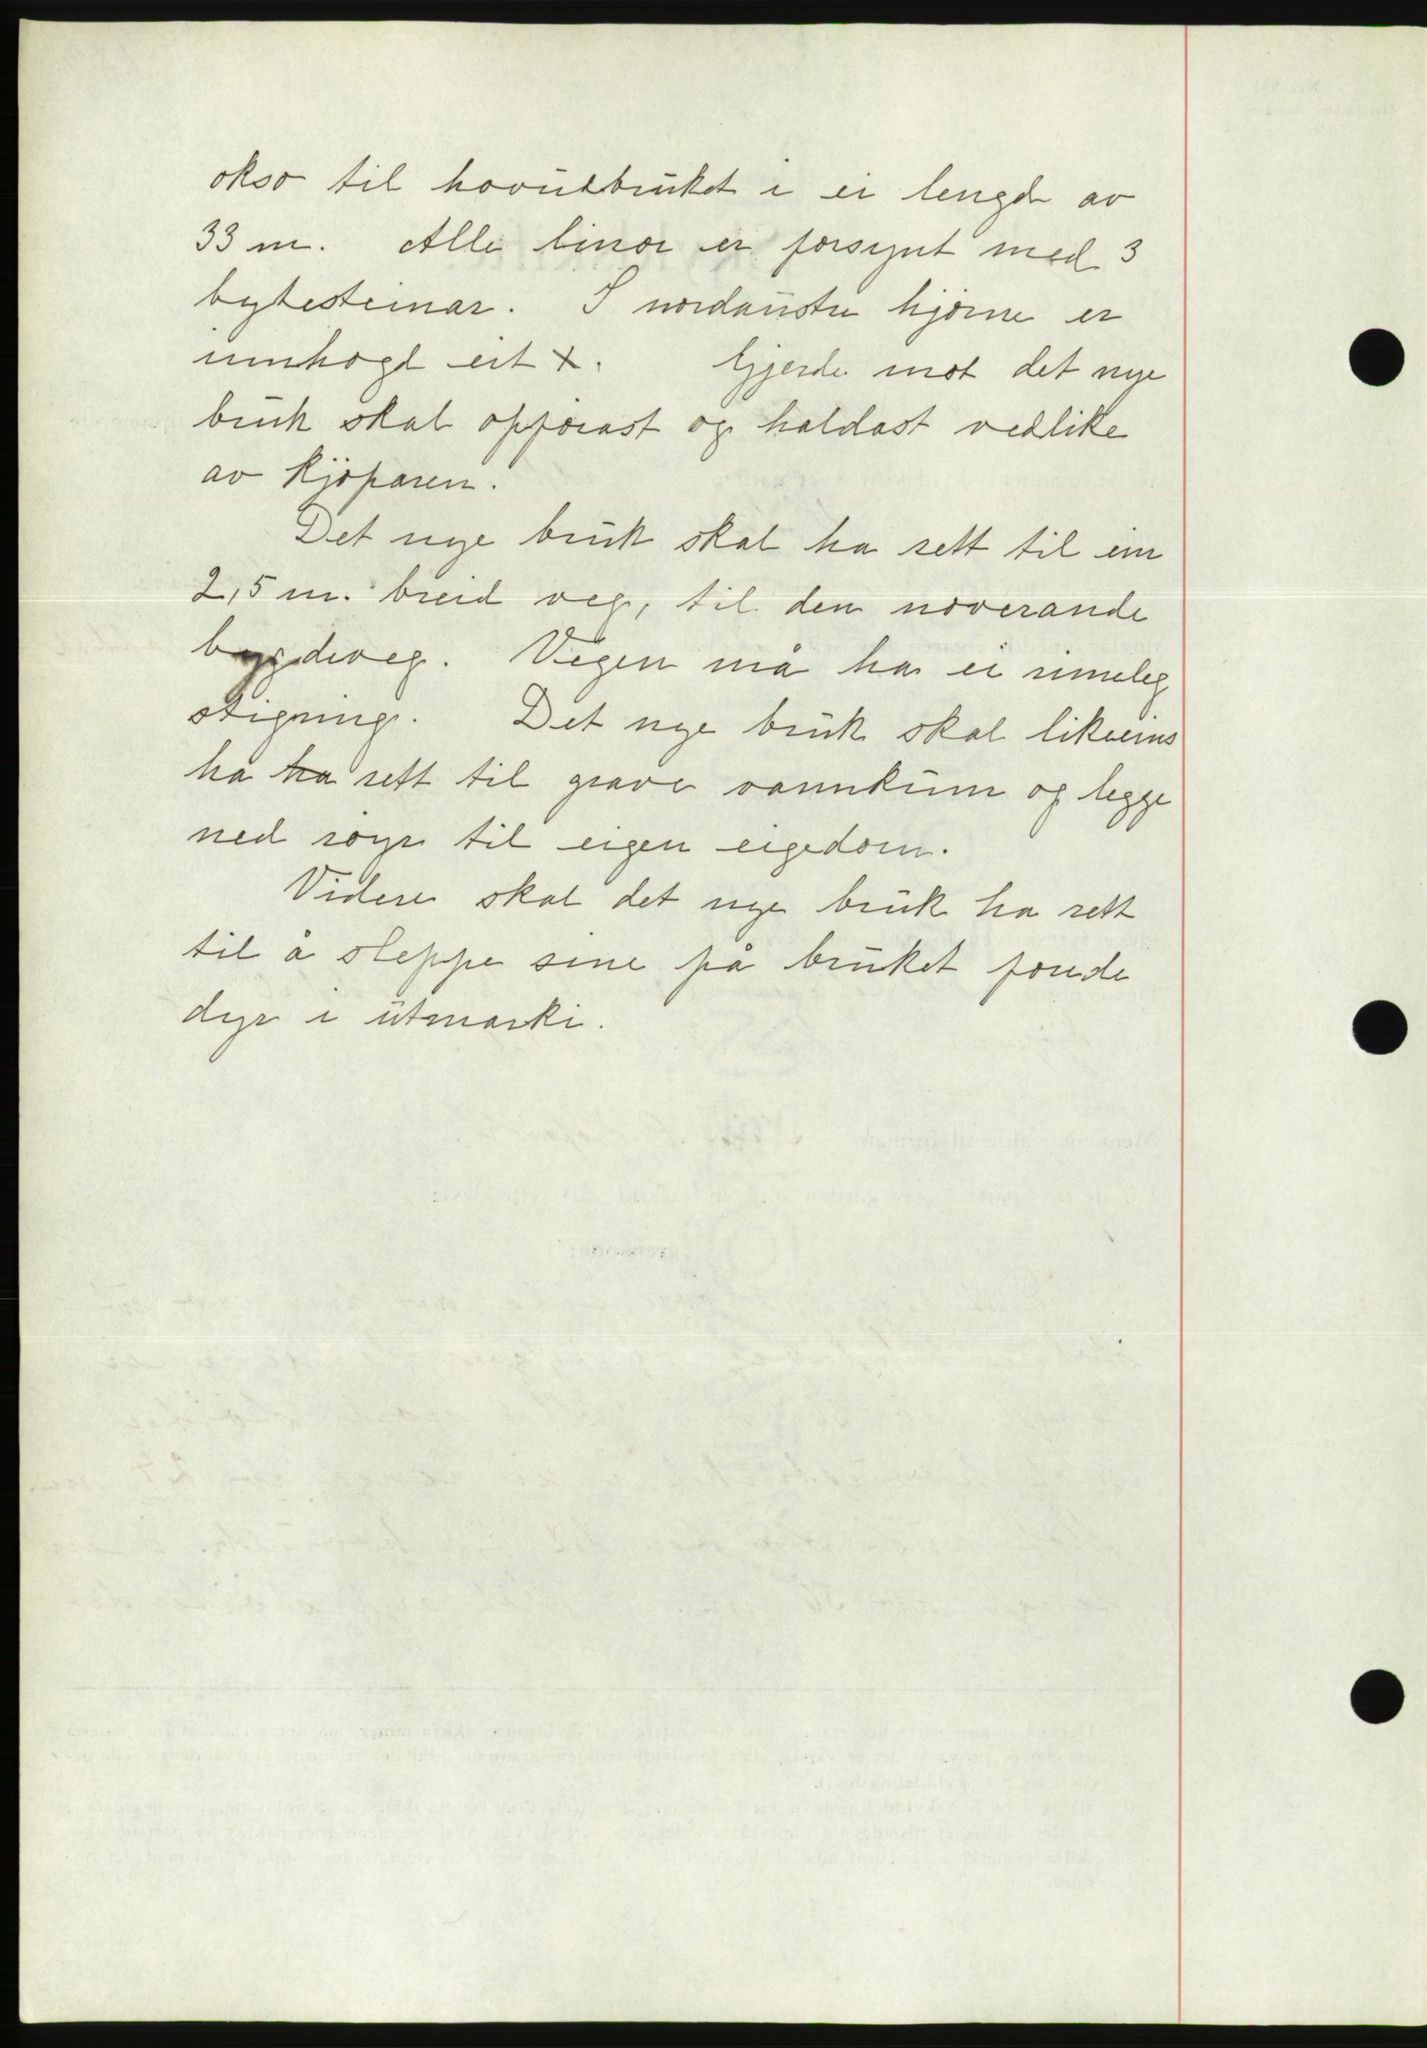 okso til hovudbruket i ei lengd av
33 m. Alle linor er forsynt med 3
bytesteinar. I nordaustre hjørne er
innhogd eit x. Gjerde mot det nye
bruk skal oppførast og haldast vedlike
av kjøparen.
Det nye bruk skal ha rett til ein
2,5 m. breid veg, til den noverande
bygdeveg. Vegen må ha ei rimeleg
stigning. Det nye bruk skal likeeins
ha ha rett til grave vannkum og legge
ned røyr til eigen eigedom.
Videre skal det nye bruk ha rett
til å sleppe sine på bruket fourde
dyr i utmarki.